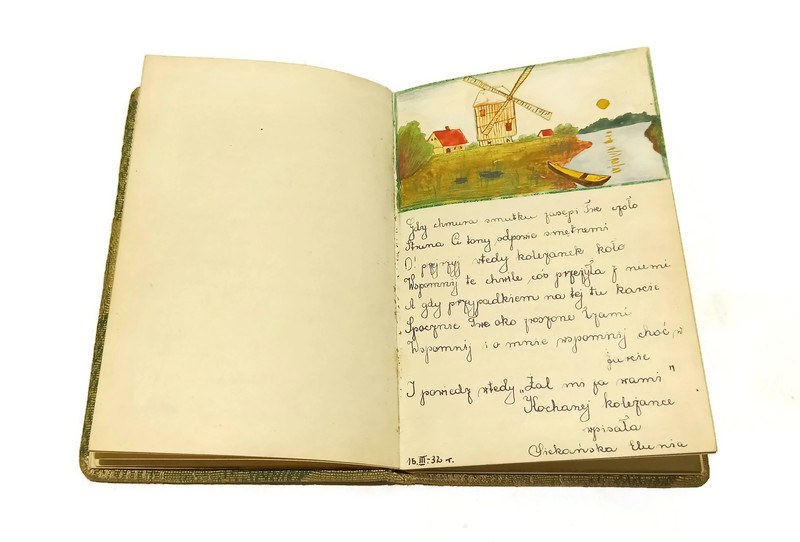 Gdy chmura smutku zasępi Twe czoło
Struna Ci tony odpowie smętnemi
O! wtedy koleżanek koło
Wspomnij te chwile, coś przeżyła z niemi
A gdy przypadkiem na tej tu karcie
Spocznie Twe oko łzami
Wspomnij i o mnie wspomnij choć w
żarcie
I powiedz wtedy „Żal mi za wami"
Kochanej koleżance
wpisała
Elunia
15.III-32 r.